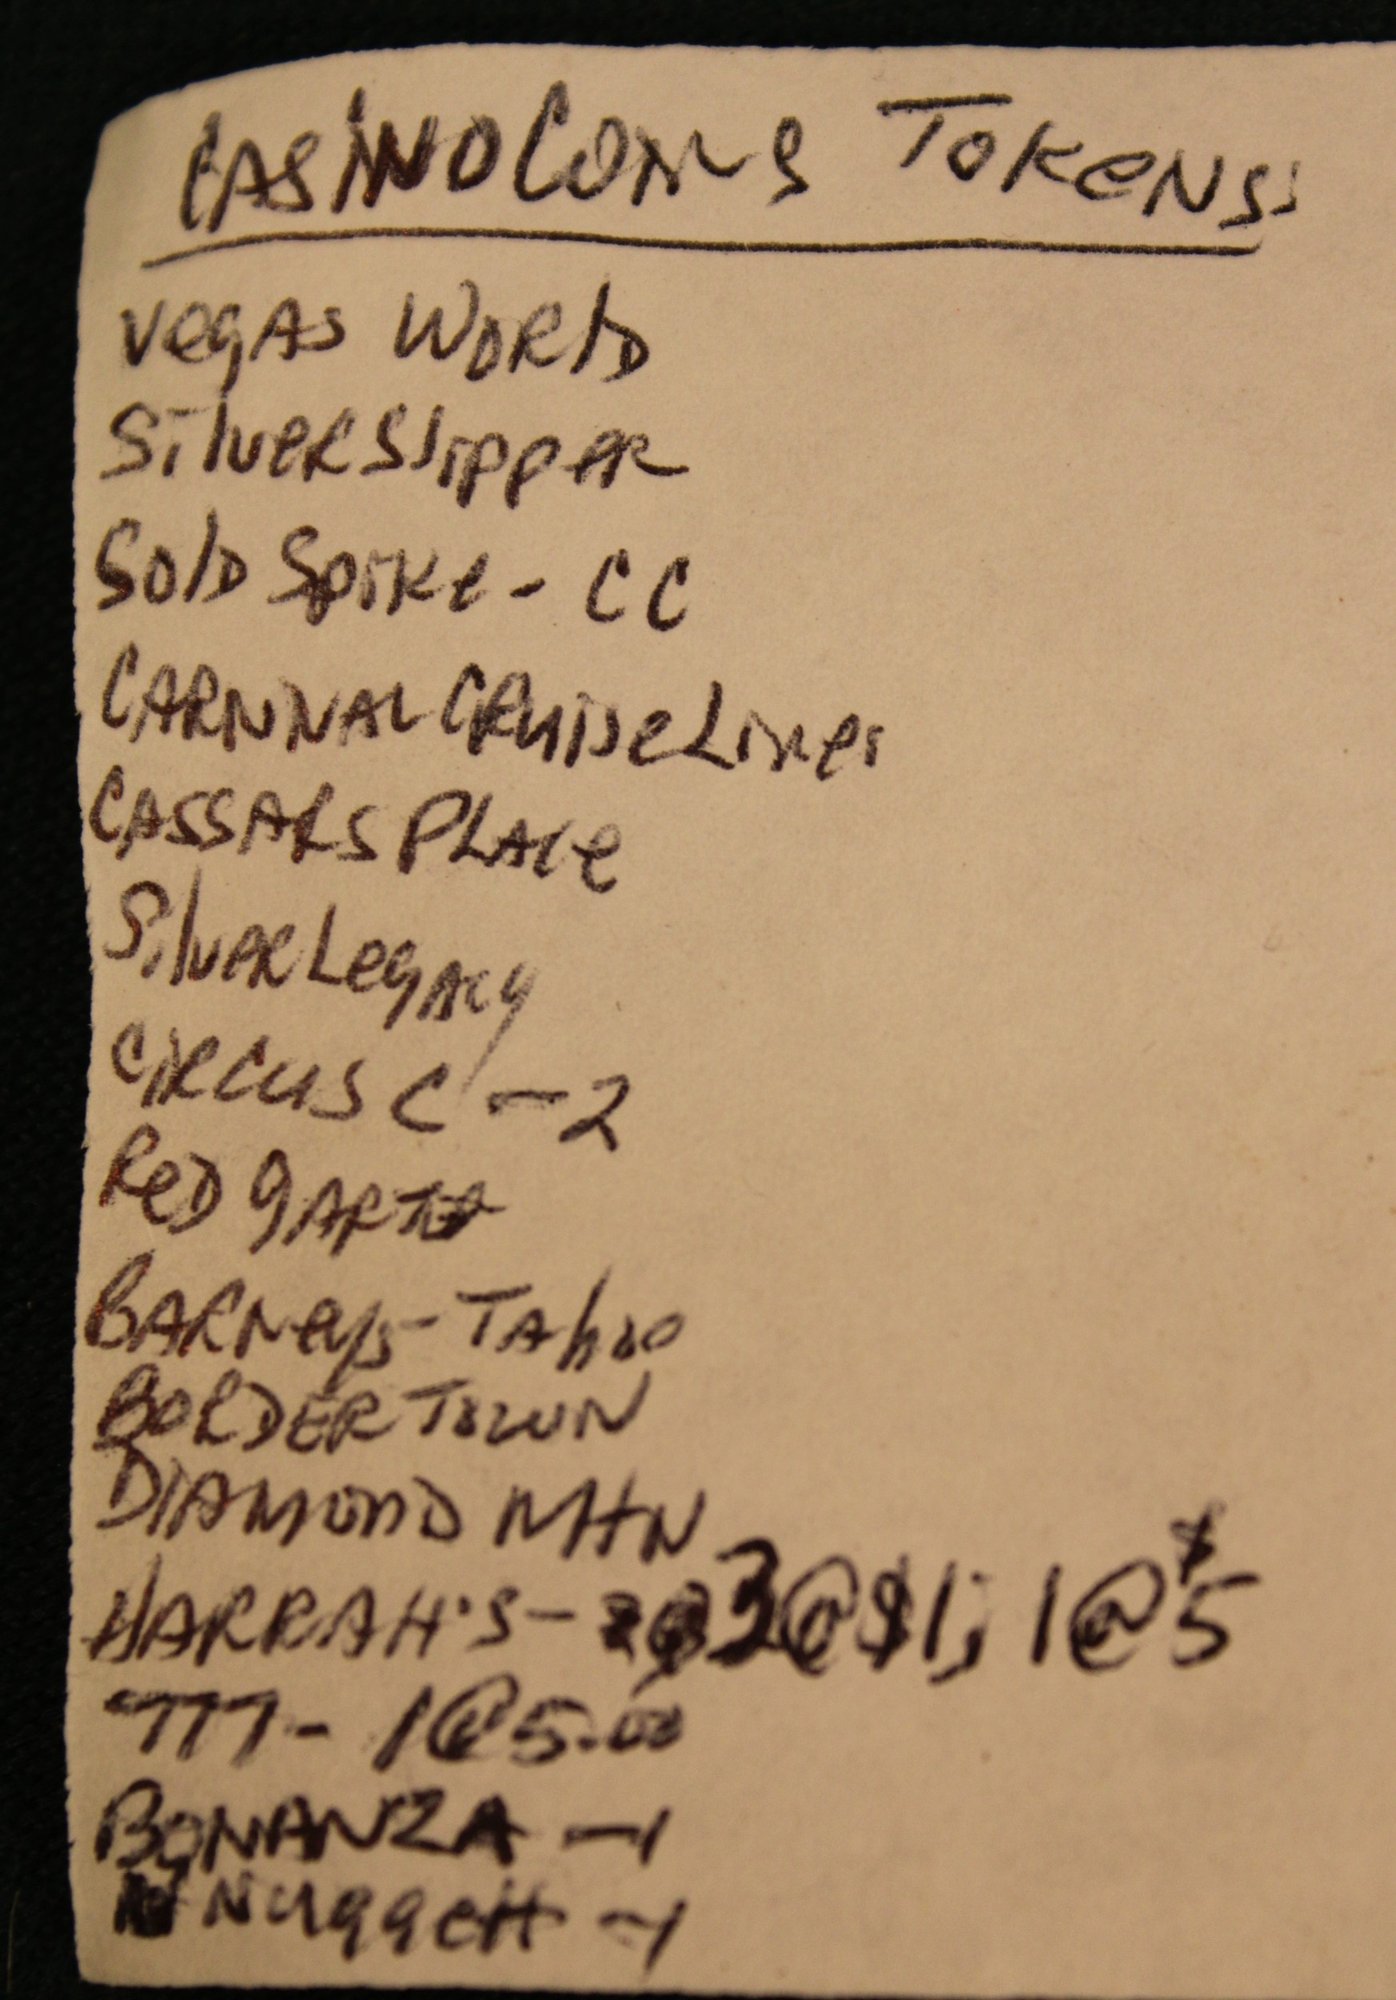 CASINO COINS TOKENS
VegAs WORlD
SilveR SlippeR
GOlD SpiKe - CC
CARNIVAL CRUISe Lines
CASSARS PLACe
SilveR LegAcy
CiRCUS C - 2
ReD gARTeR
BARNeys - TAhoe
BORDER TOWN
DIAMOND MTN
HARRAH'S - 3@$1; 1@$5
777 - 1@5.00
BONANZA - 1
NuggeTT - 1